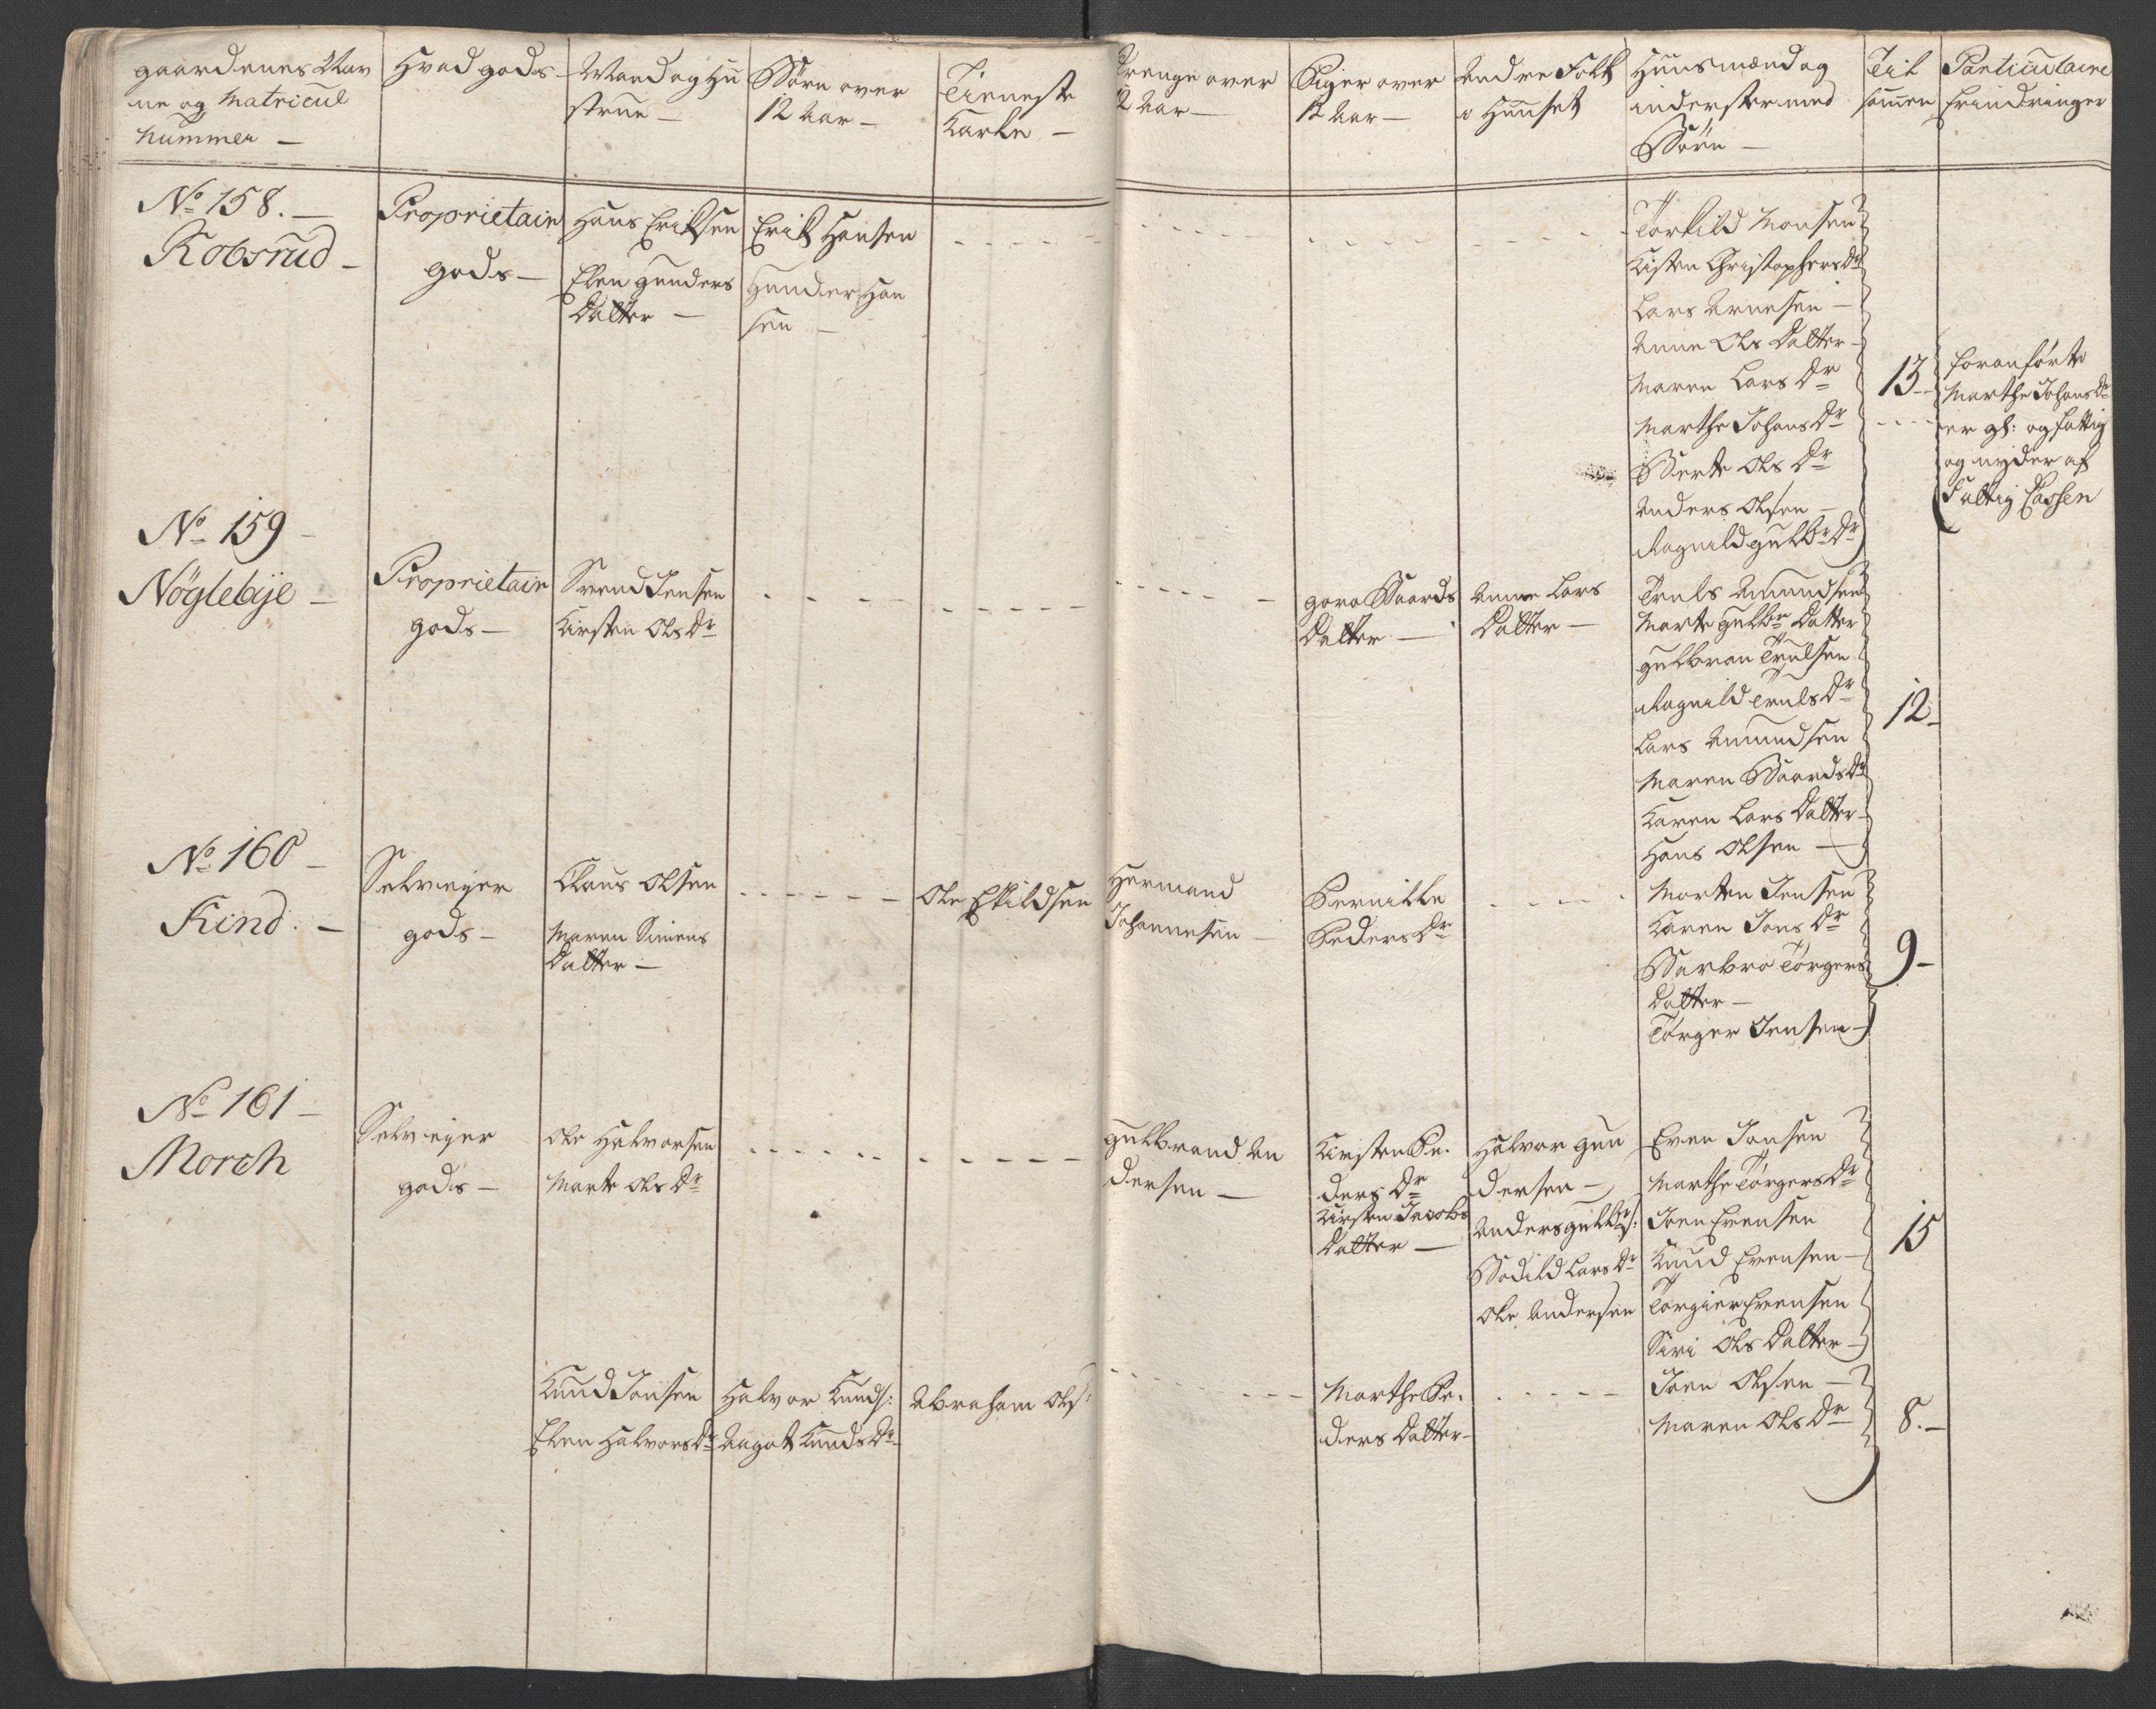 gaardenes Nav
ne og Matricul
Nummer —
Hvad gods —
Mand og Hu
strue —
Børn over
12 Aar —
Tieneste
Karle —
Drenge over
12 Aar —
Piger over
12 Aar —
Andre Folk
i Huuset
Huusmænd og
inderster med
Børn —
Til
sammen
Particulaire
Erindringer
No 158. —
Kobsrud —
Proprietair
gods —
Hans Erichsen
Elen Gunders
Datter —
Erik Hansen
Gunder Han
sen —
Torkild Monsen
Kisten Christophers Dr
Lars Arnesen —
Anne Ols Datter —
Maren Lars Dr
Marthe Johans Dr
Berte Ols Dr
Anders Olsen —
Ragnild Gulbr Dr
13 —
foranførte
Marthe Johans Dr
er gl: og fattig
og nyder af
Fattig Cassen
No 159 —
Nöglebye —
Proprietair
gods —
Svend Jensen
Kirsten Ols Dr
Goro Baards
Datter —
Anne Lars
Datter —
Truls Amundsen
Marte Gulbr Datter
Gulbran Trulsen
Ragnild Truls Dr
Lars Amundsen
Maren Baards Dr
Karen Lars Datter —
Hans Olsen —
12 —
No 160 —
Kind. —
Selveyer
gods —
Claus Olsen
Maren Simens
Datter —
Ole Eskildsen
Hermand
Johannesen —
Pernille
Peders Dr
Morten Jensen
Karen Jens Dr
Barbro Törgers
Datter —
Törger Jensen —
9 —
No 161 —
Morch
Selveyer
gods —
Ole Halvorsen
Marte Ols Dr
Gulbrand An
dersen —
Kirsten Pe.
ders Dr
Kirsten Jacobs
Datter —
Halvor Gun
dersen —
Anders Gulbrs:
Bodild Lars Dr
Ole Andersen
Even Jonsen
Marthe Törgers Dr
Joen Evensen
Knud Evensen —
Torgier Evensen
Siri Ols Datter —
15
Knud Jonsen
Elen Halvors Dr
Halvor Knuds:
Aagot Knuds Dr
Abraham Ols:
Marthe Pe.
ders Datter —
Joen Olsen —
Maren Ols Dr
8. —